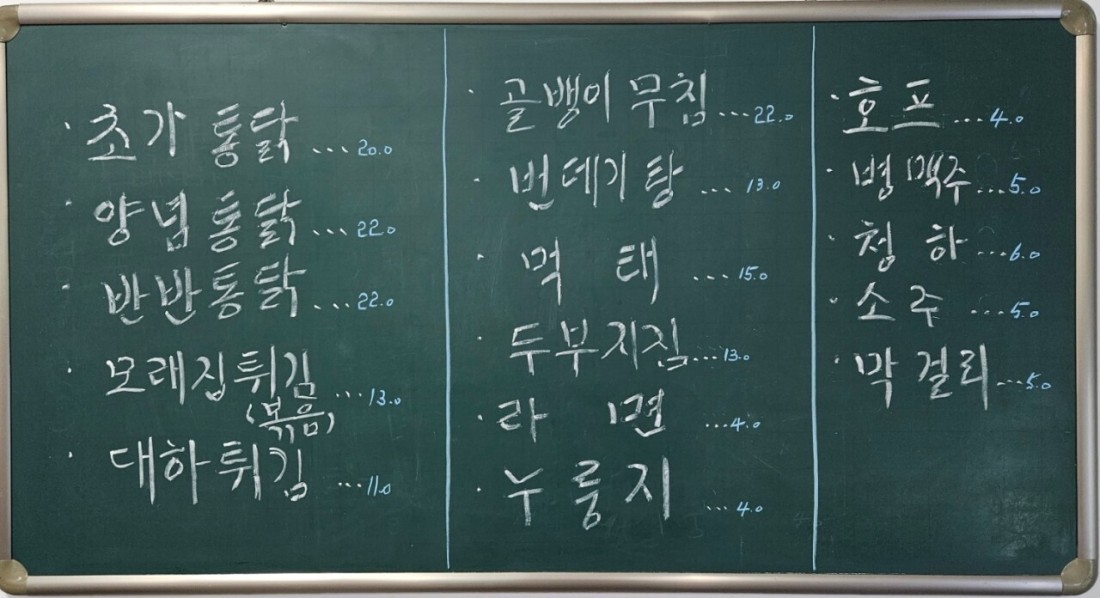 · 초가 통닭 ... 20.0
· 양념 통닭 ... 22.0
· 반반통닭 ... 22.0
· 모래집튀김 ... 13.0
(볶음)
· 대하튀김 ... 11.0
· 골뱅이 무침 ... 22.0
· 번데기탕 ... 13.0
· 먹 태 ... 15.0
· 두부지짐 ... 13.0
· 라 면 ... 4.0
· 누룽지 ... 4.0
· 호프 ... 4.0
· 병맥주 ... 5.0
· 청하 ... 6.0
· 소주 ... 5.0
· 막걸리 ... 5.0